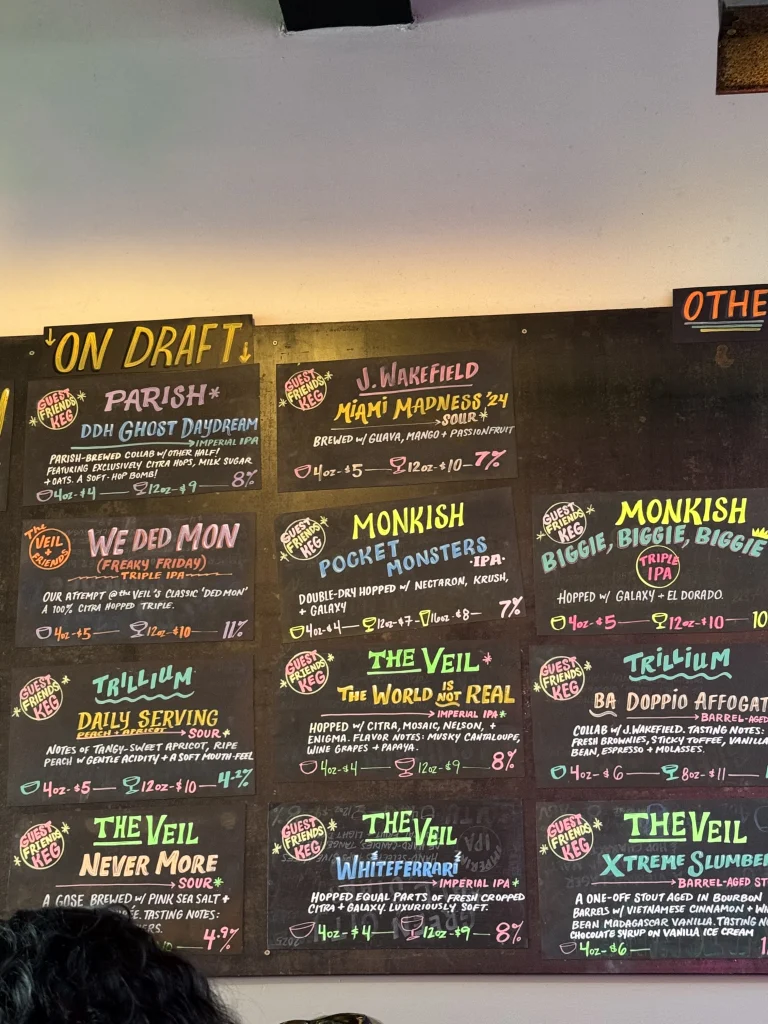 ↓ON DRAFT↓
OTHE
GUEST FRIENDS KEG
PARISH*
DDH GHOST DAYDREAM
IMPERIAL IPA
PARISH-BREWED COLLAB W/OTHER HALF!
FEATURING EXCLUSIVELY CITRA HOPS, MILK SUGAR
+ OATS. A SOFT-HOP BOMB!
4oz-$4 — 12oz-$9 — 8%
GUEST FRIENDS KEG
J. WAKEFIELD
MIAMI MADNESS '24
SOUR*
BREWED W/ GUAVA, MANGO + PASSIONFRUIT
4oz-$5 — 12oz-$10 — 7%
The VEIL + FRIENDS
WE DED MON
(FREAKY FRIDAY)
TRIPLE IPA
OUR ATTEMPT @ the VEIL'S CLASSIC 'DED MON'
A 100% CITRA HOPPED TRIPLE.
4oz-$5 — 12oz-$10 — 11%
GUEST FRIENDS KEG
MONKISH
POCKET
MONSTERS
·IPA·
DOUBLE-DRY HOPPED W/ NECTARON, KRUSH,
+ GALAXY
4oz-$4 — 12oz-$7 - 16oz-$8 — 7%
GUEST FRIENDS KEG
MONKISH
BIGGIE, BIGGIE, BIGGIE
TRIPLE
IPA
HOPPED W/ GALAXY + EL DORADO.
4oz-$5 — 12oz-$10 — 10
GUEST FRIENDS KEG
TRILLIUM
DAILY SERVING
PEACH + APRICOT
SOUR*
NOTES OF TANGY-SWEET APRICOT, RIPE
PEACH W/ GENTLE ACIDITY + A SOFT MOUTH-FEEL
4oz-$5 — 12oz-$10 — 4.2%
GUEST FRIENDS KEG
THE VEIL*
THE WORLD IS NOT REAL
IMPERIAL IPA*
HOPPED W/ CITRA, MOSAIC, NELSON, +
ENIGMA. FLAVOR NOTES: MUSKY CANTALOUPE,
WINE GRAPES + PAPAYA.
4oz-$4 — 12oz-$9 — 8%
GUEST FRIENDS KEG
TRILLIUM
BA DOPPIO AFFOGAT
BARREL-AGED
COLLAB W/ J.WAKEFIELD. TASTING NOTES:
FRESH BROWNIES, STICKY TOFFEE, VANILLA
BEAN, ESPRESSO + MOLASSES.
4oz-$6 — 8oz-$11 —
GUEST FRIENDS KEG
THE VEIL
NEVER MORE
SOUR*
A GOSE BREWED W/ PINK SEA SALT +
TASTING NOTES:
4.9%
GUEST FRIENDS KEG
THE VEIL
WHITEFERRARI
IMPERIAL IPA*
HOPPED EQUAL PARTS OF FRESH CROPPED
CITRA + GALAXY. LUXURIOUSLY SOFT.
4oz-$4 — 12oz-$9 — 8%
GUEST FRIENDS KEG
THE VEIL
XTREME SLUMBE
BARREL-AGED ST
A ONE-OFF STOUT AGED IN BOURBON
BARRELS W/ VIETNAMESE CINNAMON +
BEAN MADAGASCAR VANILLA. TASTING
CHOCOLATE SYRUP ON VANILLA ICE CREAM
4oz-$6 —